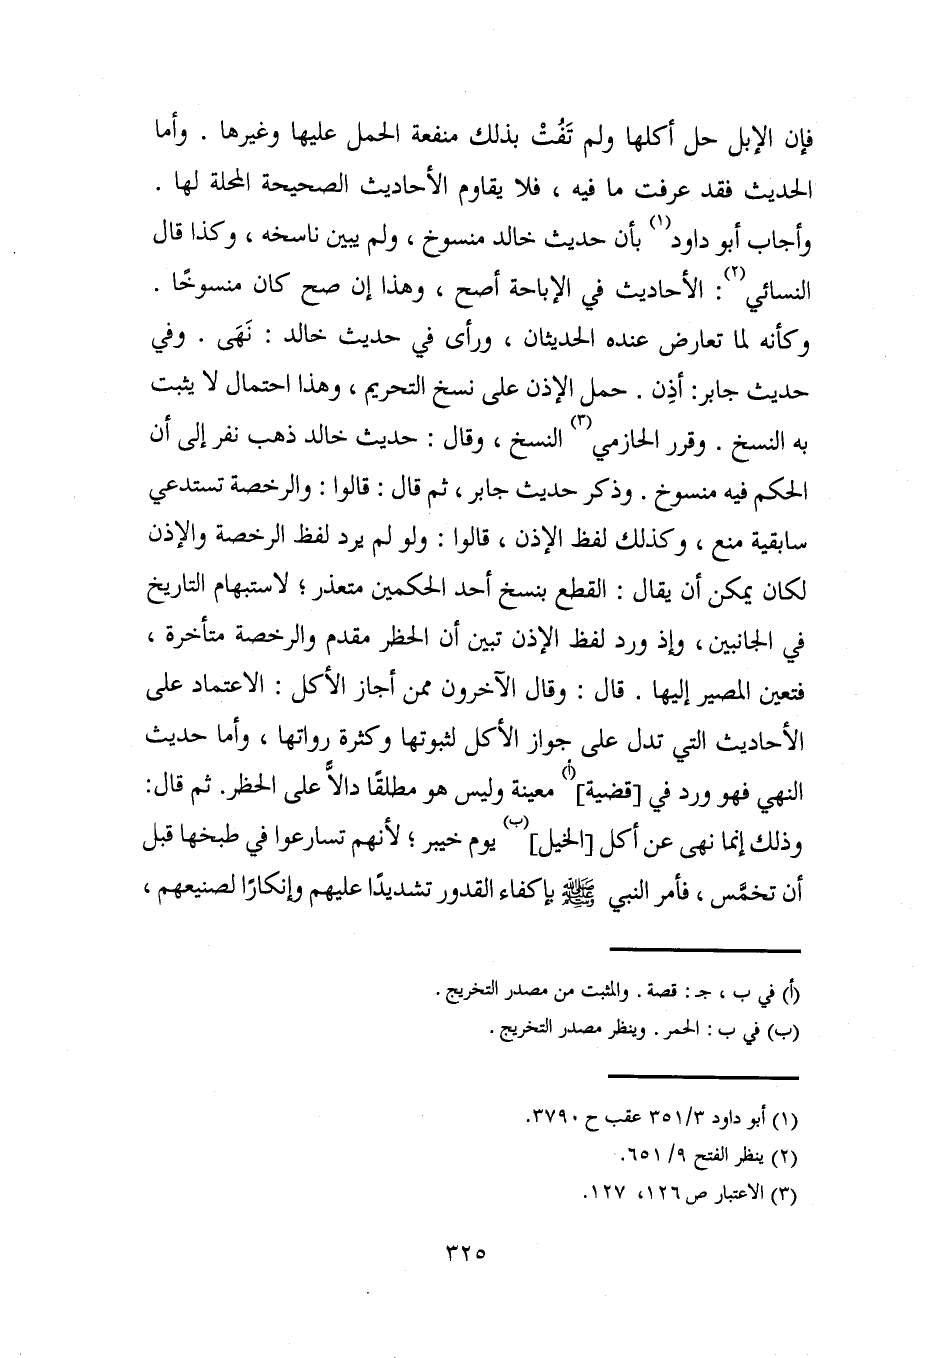 فإن الإبل حل أكلها ولم تَفُتْ بذلك منفعة الحمل عليها وغيرها . وأما
الحديث فقد عرفت ما فيه ، فلا يقاوم الأحاديث الصحيحة المحلة لها .
وأجاب أبو داود(١) بأن حديث خالد منسوخ ، ولم يبين ناسخه ، وكذا قال
النسائي(٢): الأحاديث في الإباحة أصح ، وهذا إن صح كان منسوخًا .
وكأنه لما تعارض عنده الحديثان ، ورأى في حديث خالد : نَهَى . وفي
حديث جابر: أذِن . حمل الإذن على نسخ التحريم ، وهذا احتمال لا يثبت
به النسخ . وقرر الحازمي(٣) النسخ ، وقال : حديث خالد ذهب نفر إلى أن
الحكم فيه منسوخ . وذكر حديث جابر ، ثم قال : قالوا : والرخصة تستدعي
سابقية منع ، وكذلك لفظ الإذن ، قالوا : ولو لم يرد لفظ الرخصة والإذن
لكان يمكن أن يقال : القطع بنسخ أحد الحكمين متعذر ؛ لاستبهام التاريخ
في الجانبين ، وإذ ورد لفظ الإذن تبين أن الحظر مقدم والرخصة متأخرة ،
فتعين المصير إليها . قال : وقال الآخرون ممن أجاز الأكل : الاعتماد على
الأحاديث التي تدل على جواز الأكل لثبوتها وكثرة رواتها ، وأما حديث
النهي فهو ورد في [قضية](أ) معينة وليس هو مطلقًا دالاًّ على الحظر. ثم قال:
وذلك إنما نهى عن أكل [الخيل](ب) يوم خيبر ؛ لأنهم تسارعوا في طبخها قبل
أن تخمَّس ، فأمر النبي ﷺ بإكفاء القدور تشديدًا عليهم وإنكارًا لصنيعهم ،
(أ) في ب ، جـ : قصة . والمثبت من مصدر التخريج .
(ب) في ب : الحمر . وينظر مصدر التخريج .
(١) أبو داود ٣٥١/٣ عقب ح ٣٧٩٠.
(٢) ينظر الفتح ٩/ ٦٥١.
(٣) الاعتبار ص ١٢٦، ١٢٧.
٣٢٥